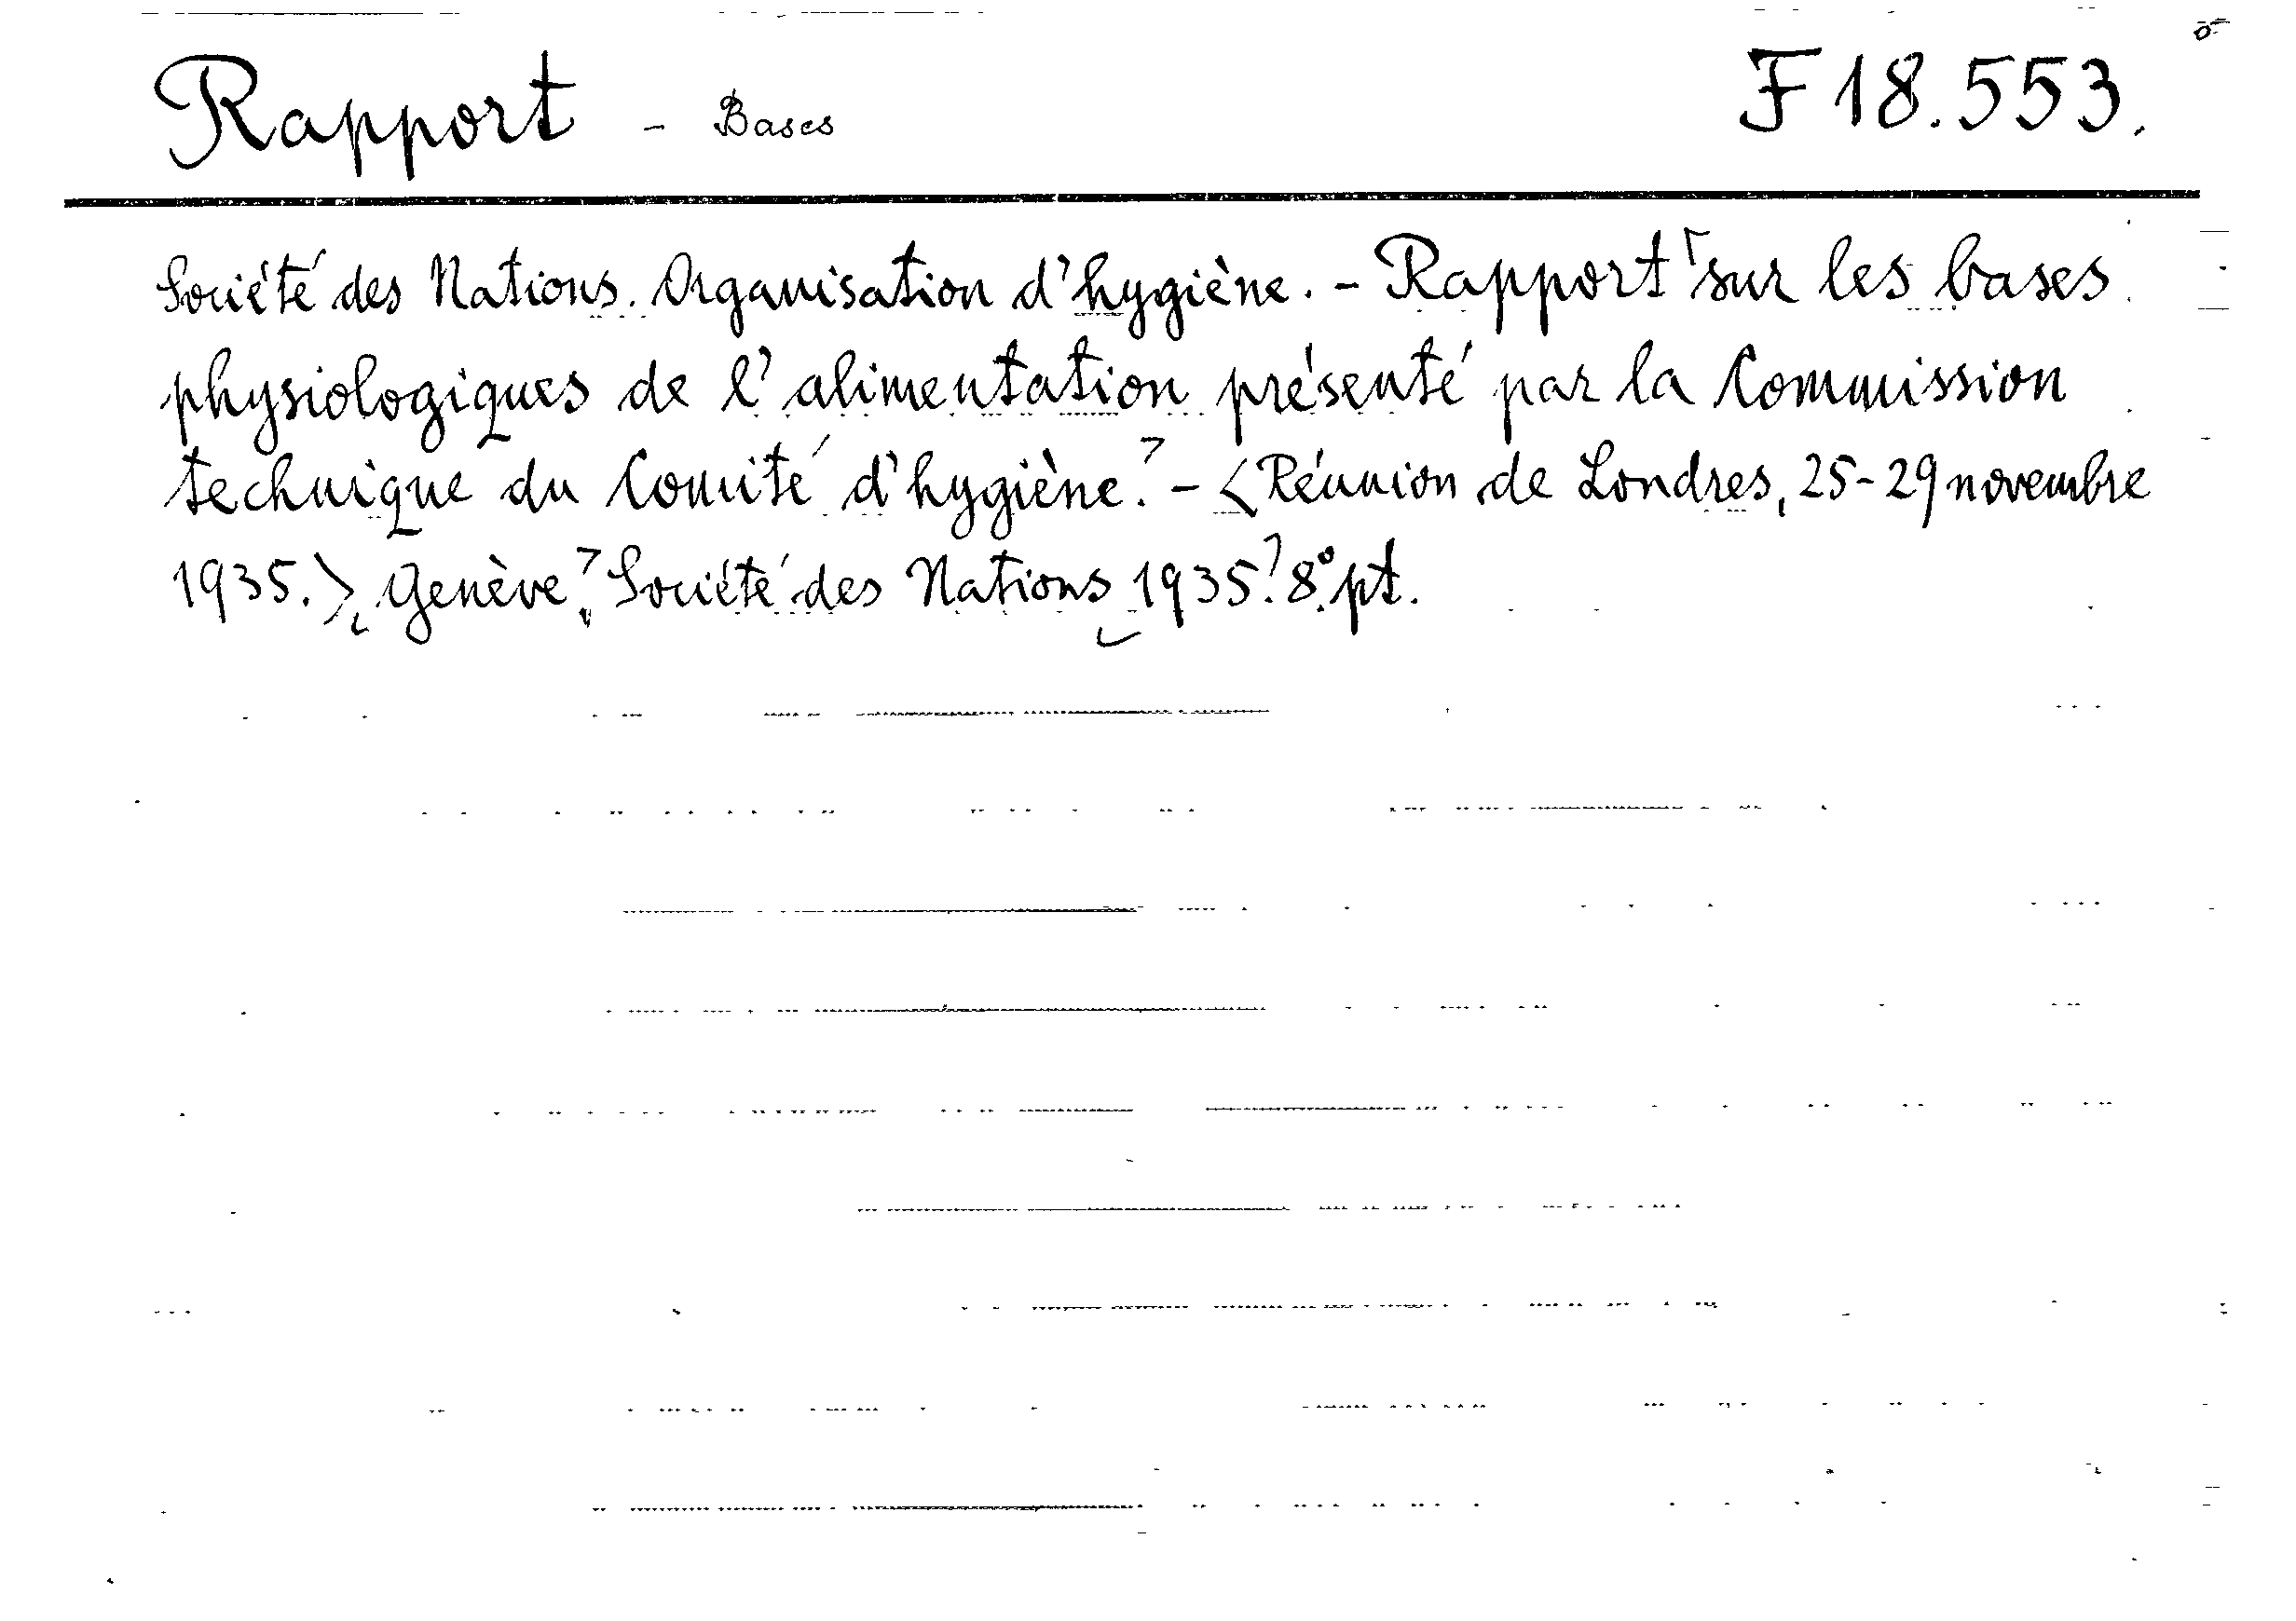 Rapport - Bases F 18.553.
Société des Nations. Organisation d'hygiène. - Rapport sur les bases
physiologiques de l'alimentation présenté par la Commission
technique du Comité d'hygiène. - <Réunion de Londres, 25-29 novembre
1935.> Genève, Société des Nations 1935. 8° pt.